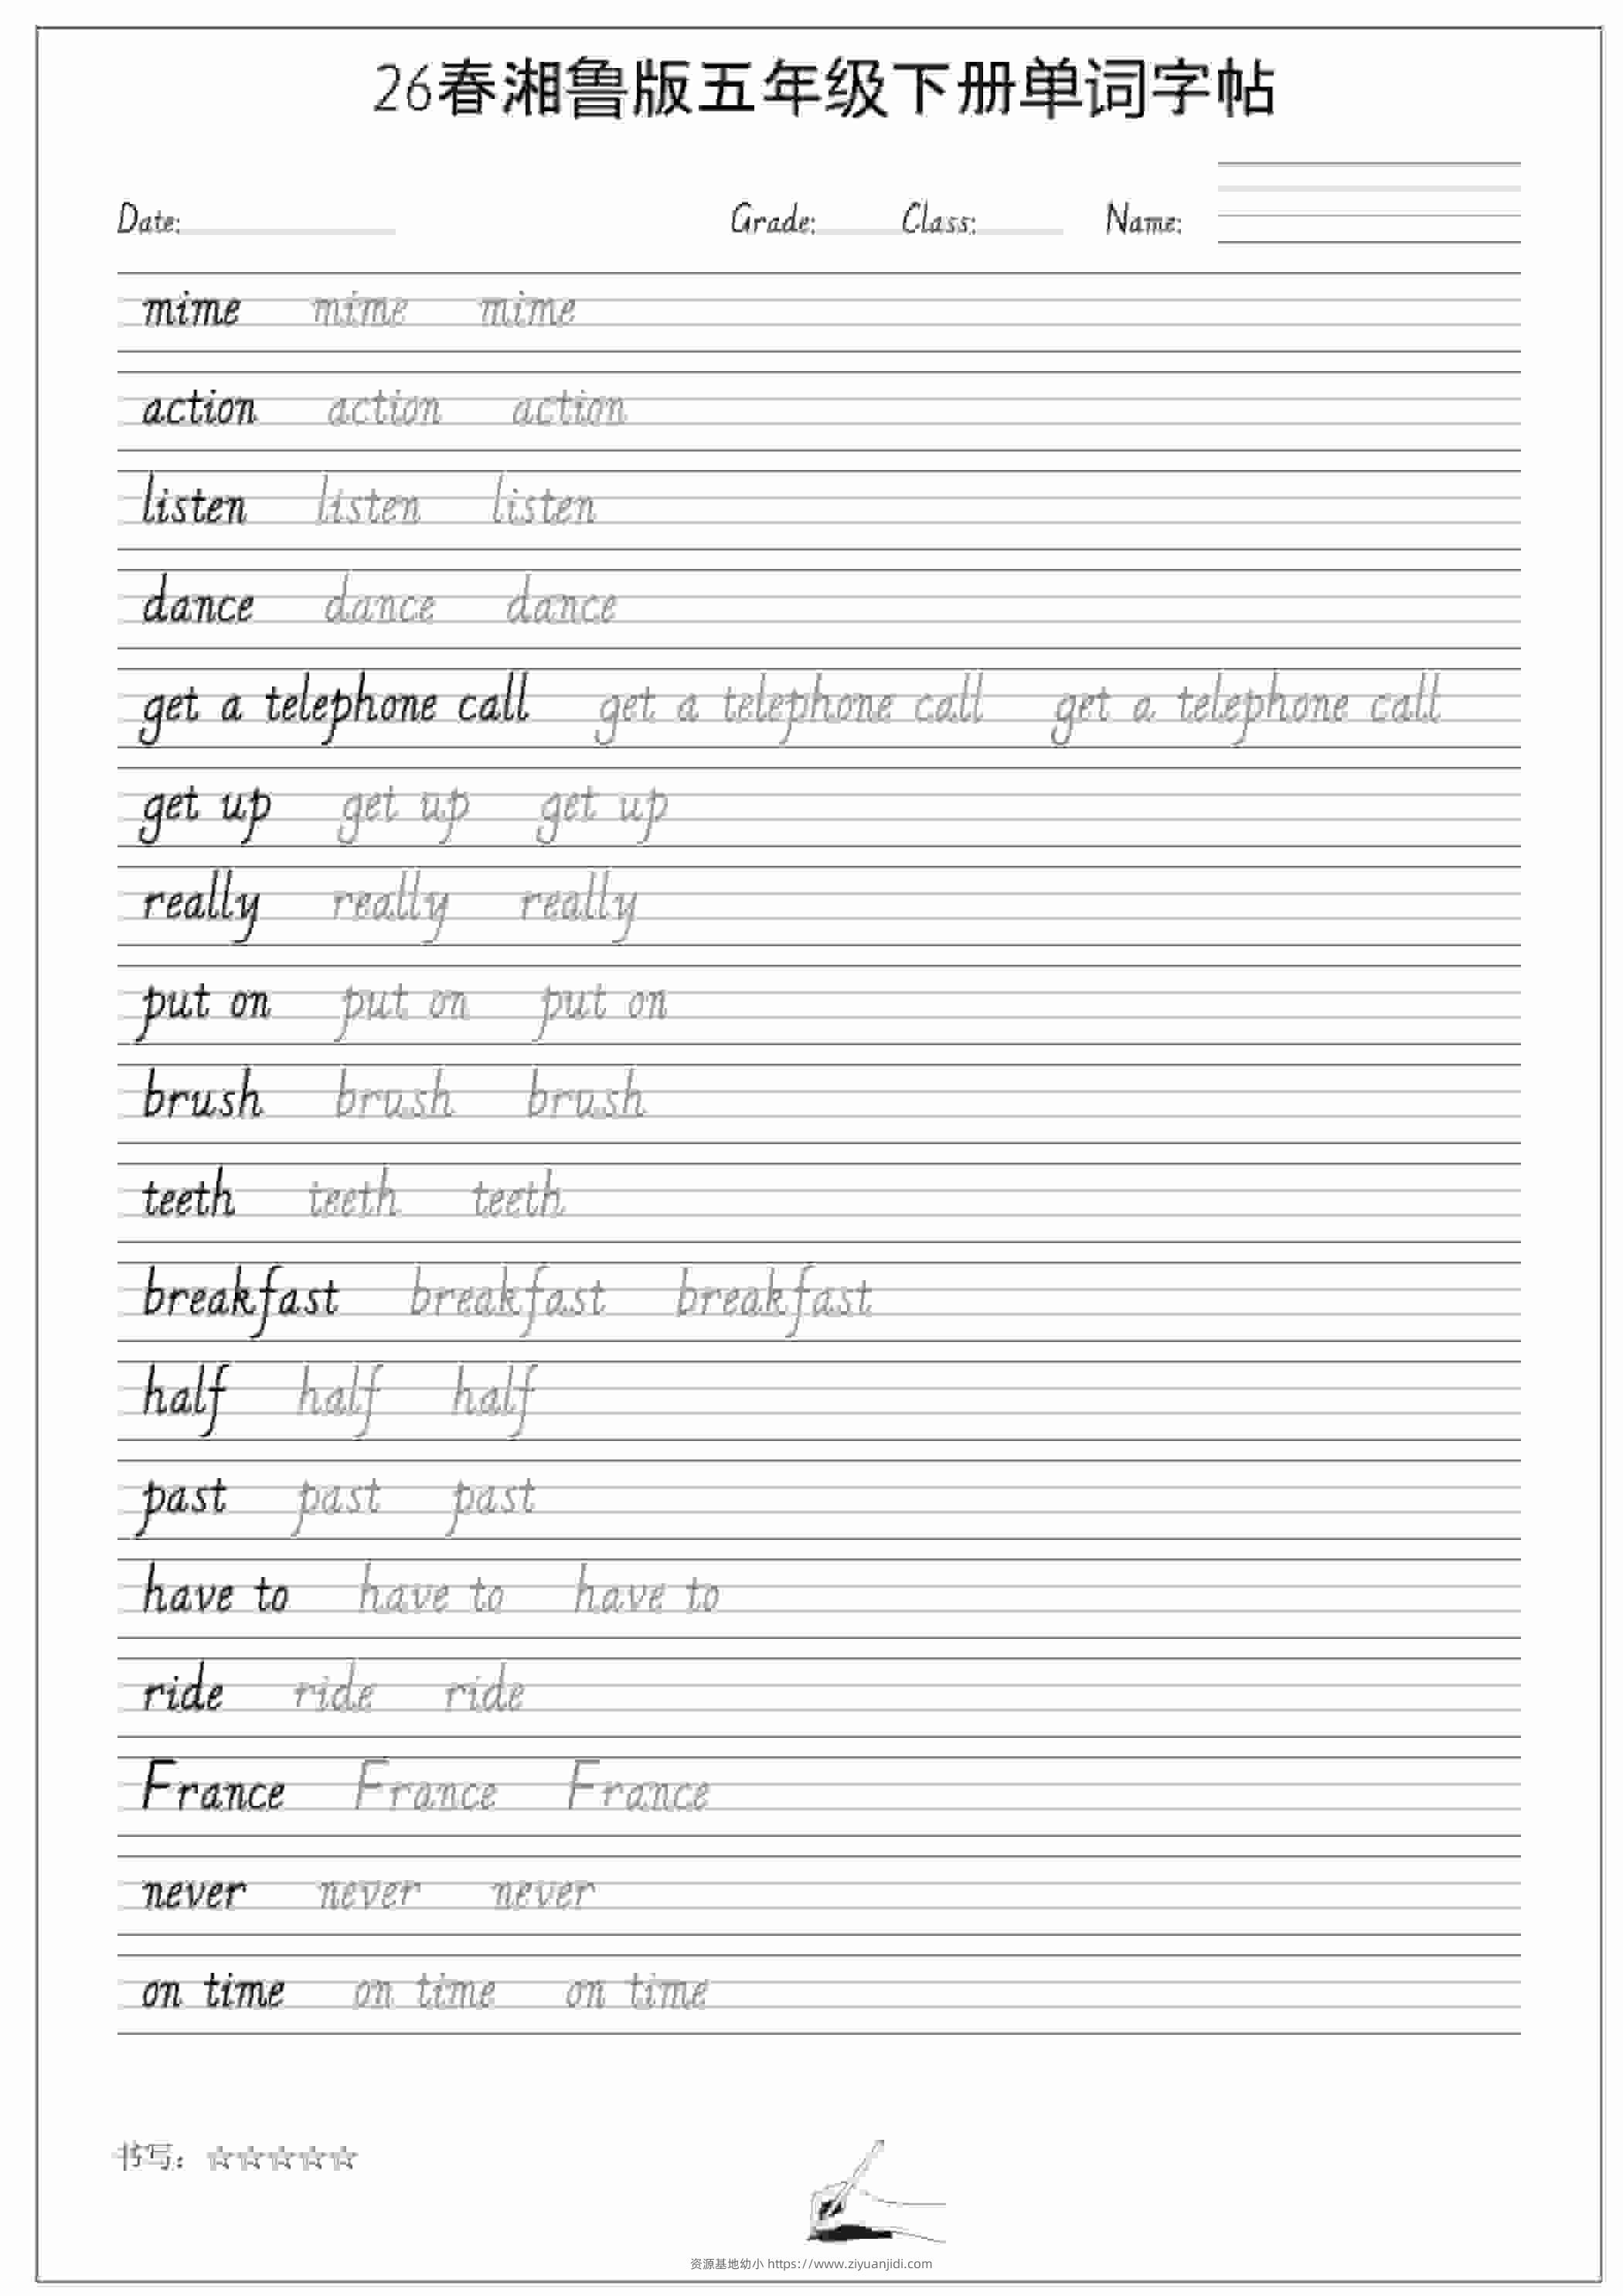 26春湘鲁版五年级下册单词字帖
Date: Grade: Class: Name:
mime mime mime
action action action
listen listen listen
dance dance dance
get a telephone call get a telephone call get a telephone call
get up get up get up
really really really
put on put on put on
brush brush brush
teeth teeth teeth
breakfast breakfast breakfast
half half half
past past past
have to have to have to
ride ride ride
France France France
never never never
on time on time on time
书写：☆☆☆☆☆
资源基地幼小 https://www.ziyuanjidi.com